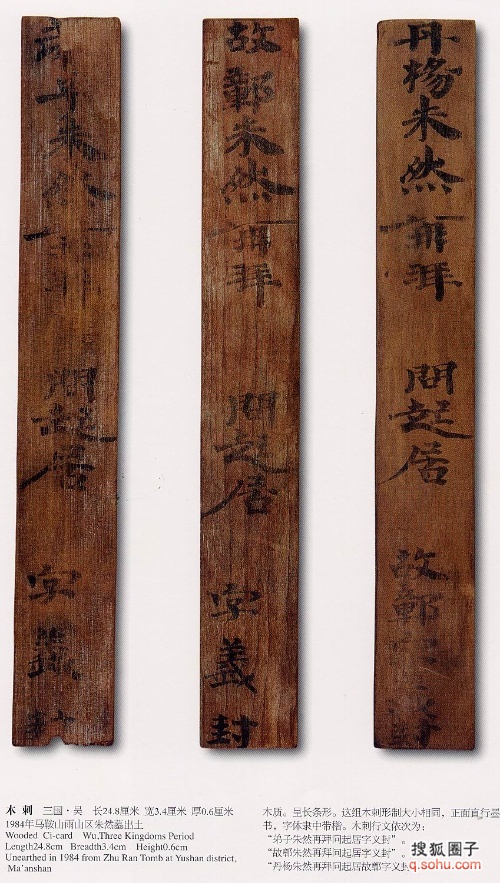 弟子朱然再拜 問起居 字義封
故鄣朱然再拜 問起居 字義封
丹楊朱然再拜 問起居 故鄣字義封
木 刺 三国·吴 长24.8厘米 宽3.4厘米 厚0.6厘米
1984年马鞍山雨山区朱然墓出土
Wooded Ci-card Wu,Three Kingdoms Period
Length24.8cm Breadth3.4cm Height0.6cm
Unearthed in 1984 from Zhu Ran Tomb at Yushan district,
Ma'anshan
木质。呈长条形。这组木刺形制大小相同，正面直行墨
书，字体隶中带楷。木刺行文依次为：
“弟子朱然再拜问起居字义封”。
“故鄣朱然再拜问起居字义封”
“丹杨朱然再拜问起居故鄣字义封
搜狐圈子
q.sohu.com